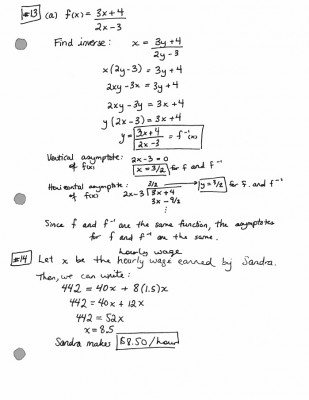 #13 (a) f(x) = 3x+4 / 2x-3
Find inverse: x = 3y+4 / 2y-3
x(2y-3) = 3y+4
2xy-3x = 3y+4
2xy-3y = 3x+4
y(2x-3) = 3x+4
y = 3x+4 / 2x-3 = f⁻¹(x)
Vertical asymptote of f(x): 2x-3=0
x = 3/2 for f and f⁻¹
Horizontal asymptote of f(x): 2x-3 3x+4 3/2 → y = 3/2 for f and f⁻¹
3x-9/2
⋮
Since f and f⁻¹ are the same function, the asymptotes
for f and f⁻¹ are the same.
hourly wage
#14 Let x be the hourly wage earned by Sandra.
Then, we can write:
442 = 40x + 8(1.5)x
442 = 40x + 12x
442 = 52x
x = 8.5
Sandra makes $8.50/hour